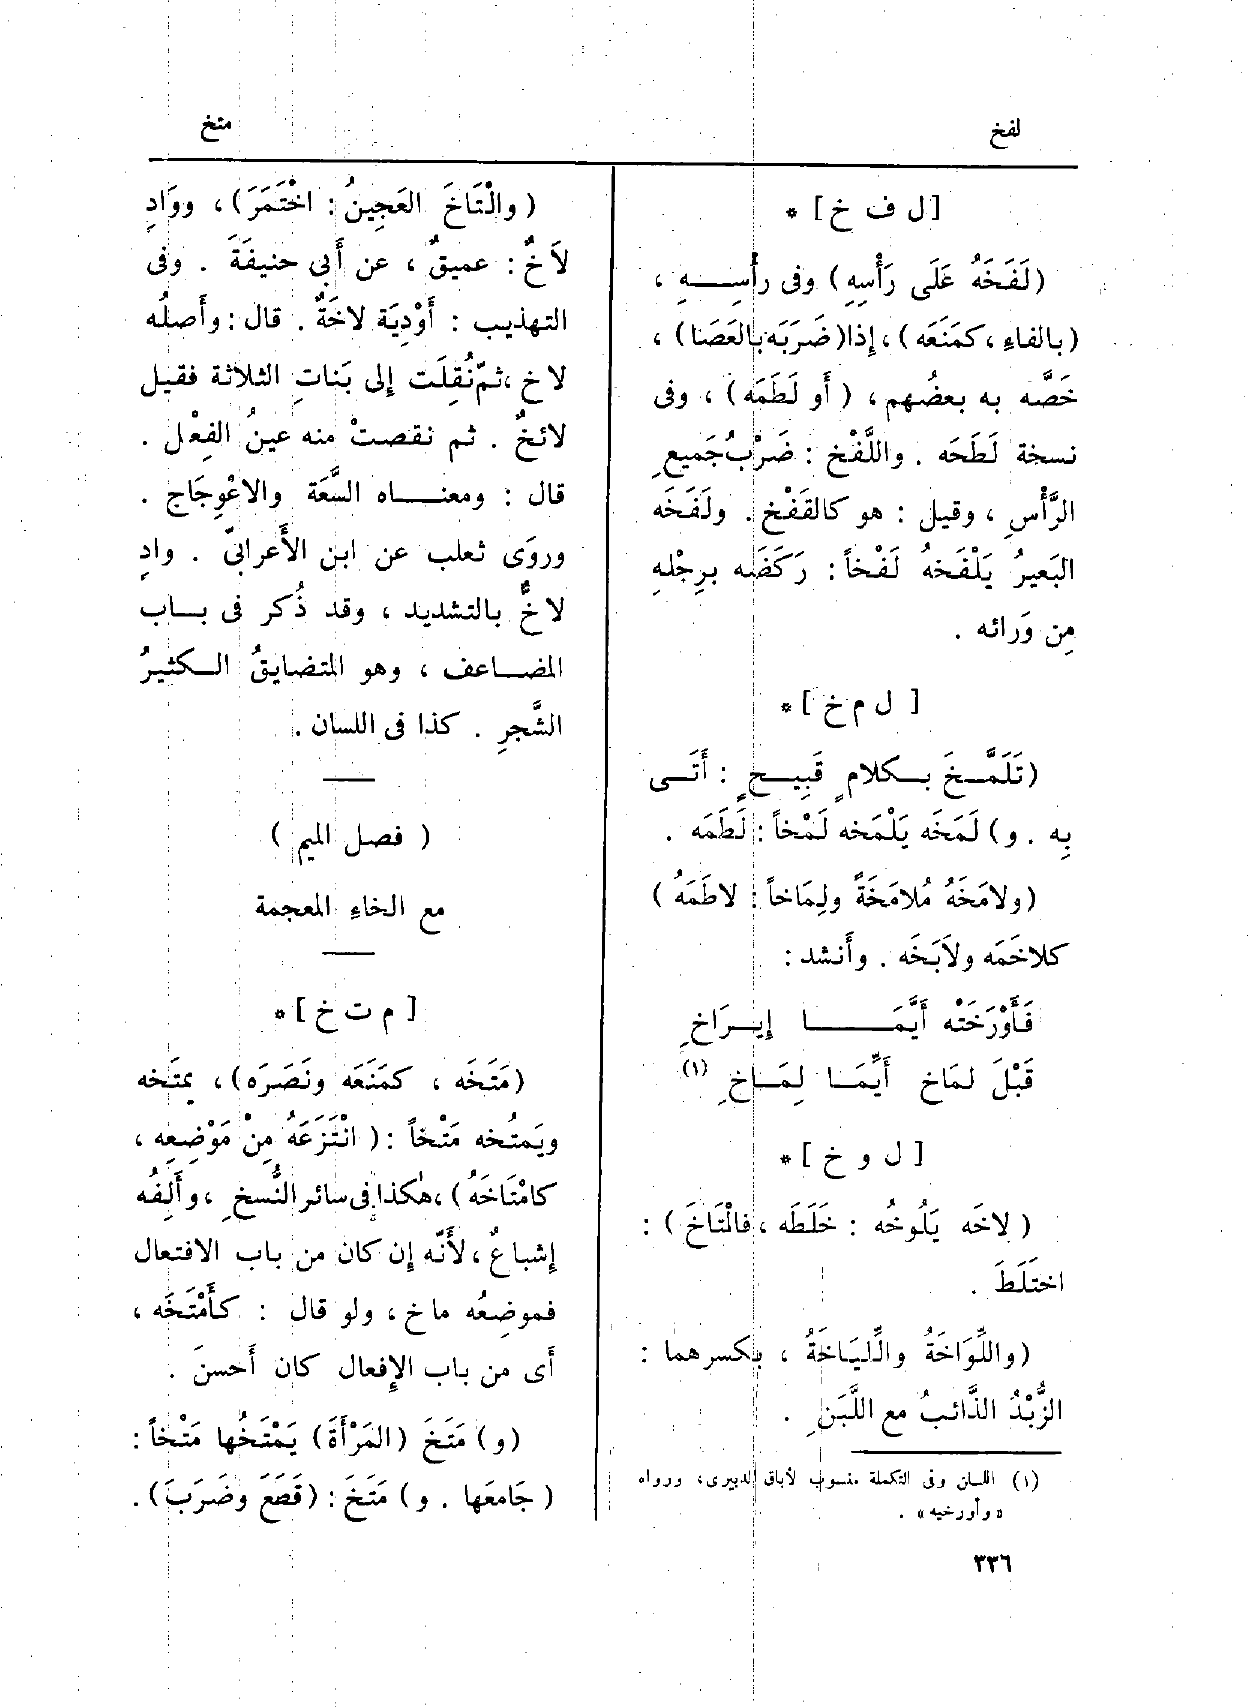 لفخ
متخ
[ل ف خ] *
(لَفَخَهُ عَلَى رَأْسِهِ) وفى رأْسِــهِ ،
(بالفاءِ ، كمَنَعَه) ، إذا (ضَرَبَه بالعَصَا) ،
خَصَّه به بعضُهم ، (أَو لَطَمَه) ، وفى
نسخة لَطَحَه . واللَّفْخ : ضَرْبُ جَميعِ
الرَّأْسِ ، وقيل : هو كالقَفْخ . ولَفَخَه
البَعيرُ يَلْفَخهُ لَفْخاً : رَكَضَه برِجْلهِ
مِن وَرائه .
[ ل م خ ] *
(تَلَمَّــخَ بــكلامٍ قَبِيــحٍ : أَتَــى
بِه . و) لَمَخَه يَلْمَخه لَمْخاً : لَطَمَه .
(ولامَخَهُ مُلامَخَةً ولِمَاخاً : لاطَمَهُ)
كلاخَمَه ولاَبَخَه . وأَنشد :
فَأَوْرَخَتْه أَيَّمَــا إِيــرَاخِ
قَبْلَ لمَاخ أَيِّمَــا لِمَــاخِ (١)
[ ل و خ ] *
( لاخَه يَلُوخُه : خَلَطَه ، فالْتَاخَ ) :
اختَلَطَ .
(واللِّوَاخَةُ واللِّيَاخَةُ ، بكسرهما :
الزُّبْدُ الذَّائبُ مع اللَّبَنِ .
(١) اللسان وفى التكملة منسوب لأباق الدبيرى ، ورواه
« وأورخيه » .
٣٣٦
(والْتَاخَ العَجِينُ : اخْتَمَرَ) ، ووَادِ
لاَخٌ : عميقٌ ، عن أَبى حنيفَةَ . وفى
التهذيب : أَوْدِيَة لاخَةٌ . قال : وأَصلُه
لاخ ، ثمّ نُقِلَت إلى بَناتِ الثلاثة فقيل
لائخٌ . ثم نقصتْ منه عينُ الفِعْل .
قال : ومعنــاه السَّعَة والاعْوِجَاج .
وروَى ثعلب عن ابن الأَعرابىّ . وادِ
لاخٌّ بالتشديد ، وقد ذُكر فى بــاب
المضــاعف ، وهو المتضايقُ الــكثيرُ
الشَّجرِ . كذا فى اللسان .
( فصل الميم )
مع الخاءِ المعجمة
[ م ت خ ] *
(مَتَخَه ، كمَنَعَه ونَصَرَه) ، يمتَخه
ويَمتُخه مَتْخاً : ( انْتَزَعَهُ مِنْ مَوْضِعِه ،
كامْتَاخَهُ) ، هٰكذا فى سائر النُّسخِ ، وأَلِفُه
إشباعٌ ، لأَنَّه إن كان من باب الافتعال
فموضِعُه ماخ ، ولو قال : كأَمْتَخَه ،
أَى من باب الإِفعال كان أَحسنَ .
(و) مَتَخَ (المَرْأَةَ) يَمْتَخُها مَتْخاً :
( جَامعَها . و) مَتَخَ : (قَطَعَ وضَرَبَ) .